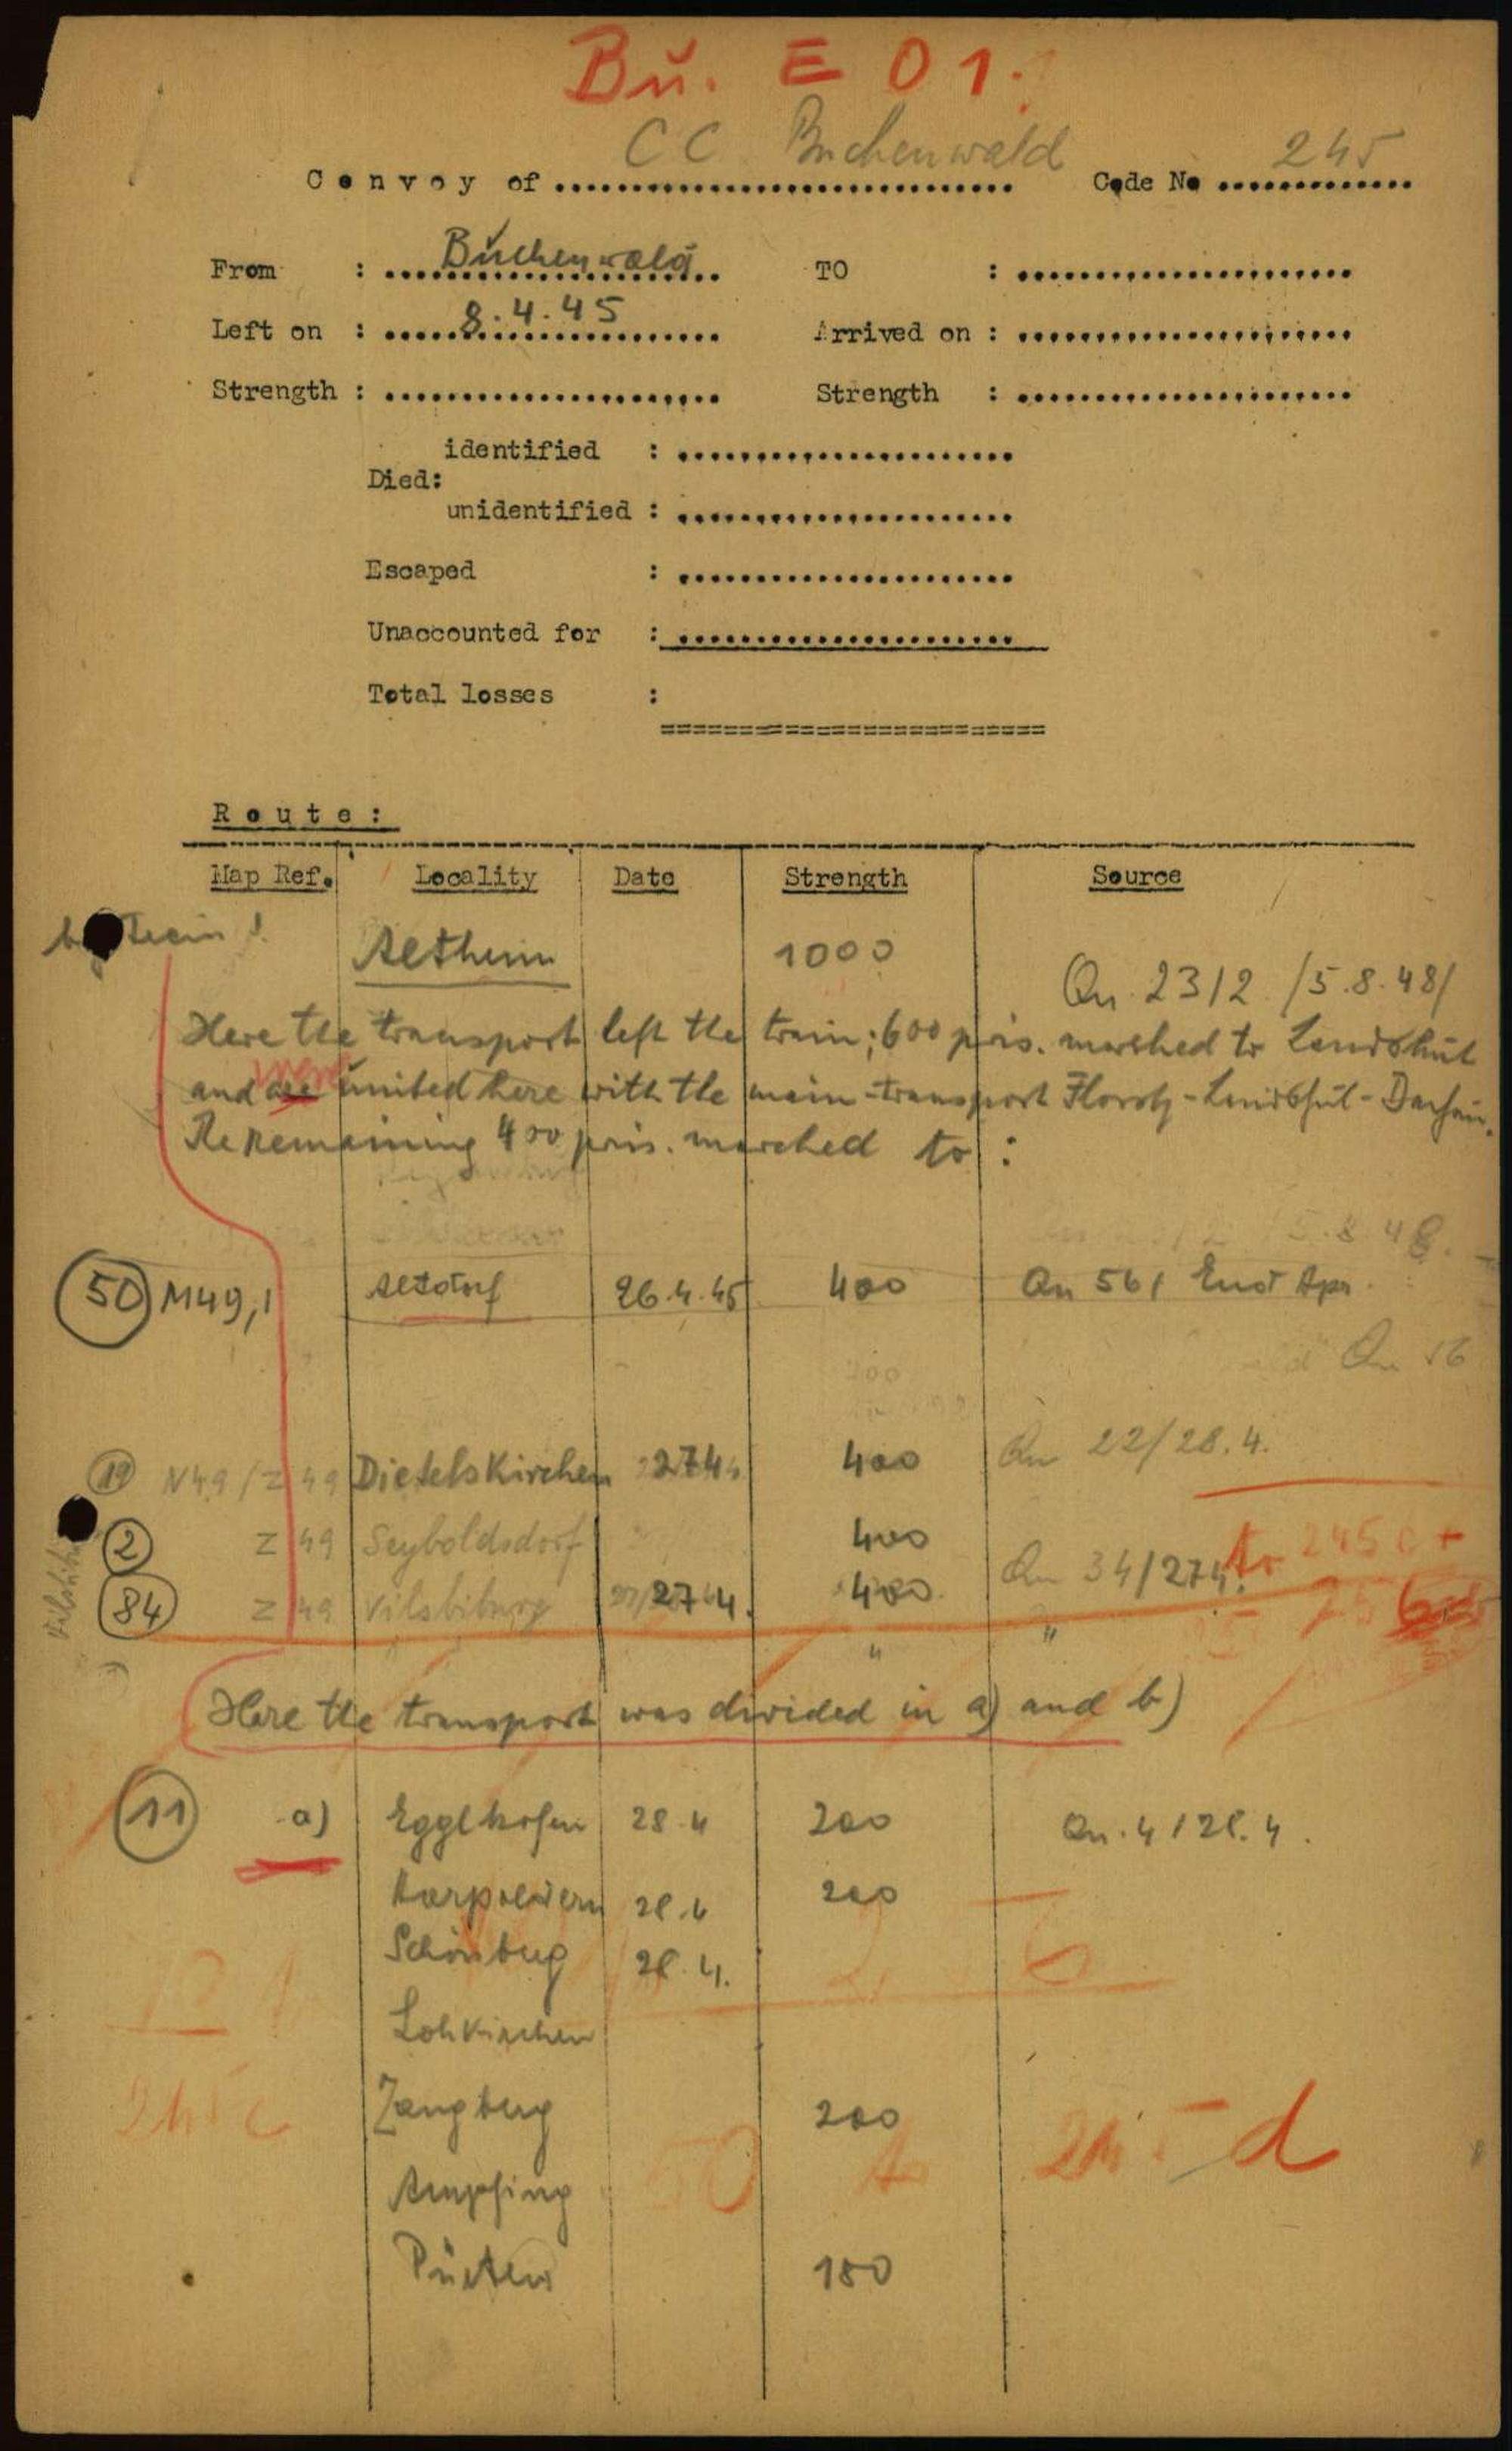 Bu. E 01.
Convoy of CC Buchenwald Code No 245
From : Buchenwald TO :
Left on : 8.4.45 Arrived on :
Strength : Strength :
identified :
Died:
unidentified :
Escaped :
Unaccounted for :
Total losses :
Route:
Map Ref. Locality Date Strength Source
Altheim 1000
Qu. 2312 /5.8.48/
Here the transport left the train; 600 pris. marched to Landshut
and were united here with the main-transport Floss - Landshut - Dachau.
Re remaining 400 pris. marched to :
50 M49,1 Altdorf 26.4.45 400 Qu 561 End Apr.
19 N49/Z 49 Dietelskirchen 27.4. 400 Qu 22/28.4.
2 Z 49 Seyboldsdorf 400
84 Z 49 Vilsbiburg 27.4. 400 Qu 34/27.4. to 245 c +
" "
Here the transport was divided in a) and b)
11 a) Egglkofen 28.4 200 Qu. 4/28.4.
28.4 200
Schönberg 28.4.
Lohkirchen
Zangberg 200
245 c 245 d
Ampfing
Pürten 180